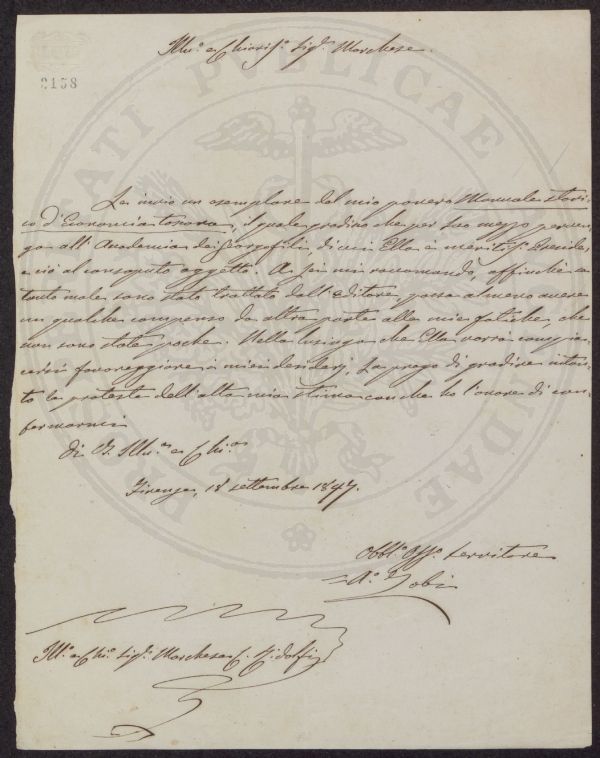 Illu.º e Chiariss.º Sig.r Marchese.
2158
PROSPERITATI PVBLICAE AVGENDAE
Le invio un esemplare del mio povero Manuale stori-
co d'Economia toscana, il quale gradirei che per suo mezzo perven-
ga all'Accademia dei Georgofili, di cui Ella è meritiss.º Preside,
e ciò al consaputo oggetto. A Lei mi raccomando, affinchè se
tanto male sono stato trattato dall'editore, possa almeno avere
un qualche compenso da altra parte alle mie fatiche che
non sono state poche. Nella lusinga che Ella vorrà compia-
cersi favoreggiare i miei desiderj, La prego di gradire intan-
to le proteste dell'alta mia stima con che ho l'onore di con-
fermarmi
Di V. Illu.ª e Chi.ª
Firenze, 18 settembre 1847.
Obbl.º Aff.º servitore
A.º Zobi
Ill.º e Ch.º Sig.r Marchese C. Ridolfi